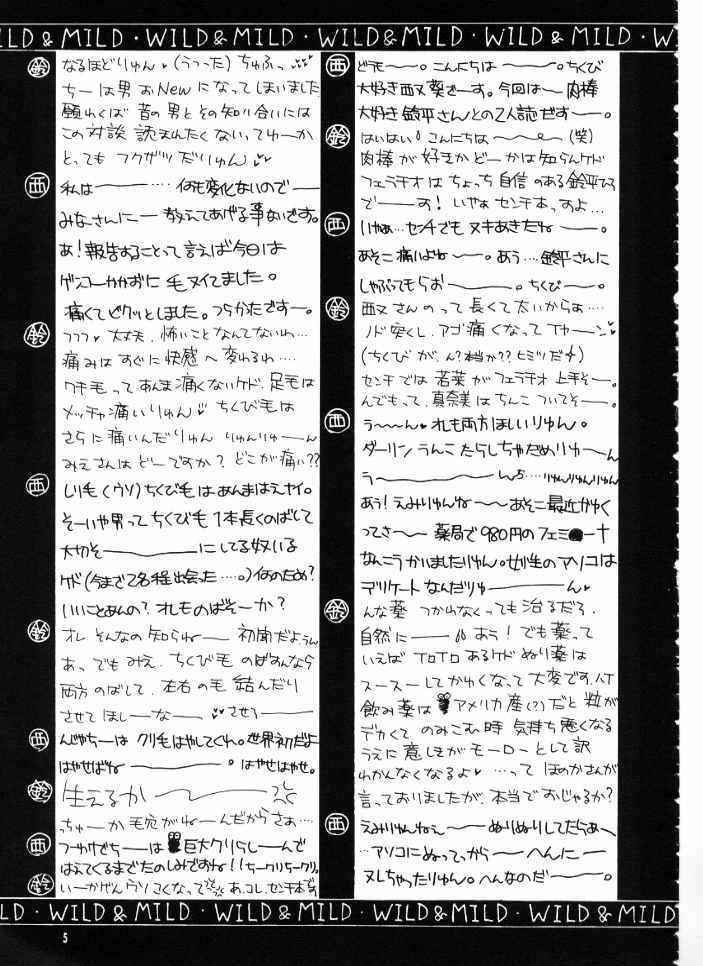 WILD & MILD · WILD & MILD · WILD & MILD · WILD & MILD
西
どうも〜〜。こんにちは〜〜〜。ちくび
大好き西又葵でーす。今回は〜肉棒
大好き鈴平さんとの2人談です〜。
鈴
はいはい こんにちは〜〜〜 (笑)
肉棒が好きかどーかは知らんケド
フェラチオはちょっち自信のある鈴平ひろ
で〜〜す! いやぁ センチあっすよ…
西
いやぁ…センチでもヌキあきたね〜〜。
あそこ痛いよね〜〜。あう…鈴平さんに
しゃぶってもらお〜〜〜。ちくび〜〜。
鈴
西又さんのって長くて太いからぁ‥‥
ノド突くし、アゴ痛くなってイヤ〜ン
(ちくびが、ん?本当か??ヒミツだ)
西
う〜〜ん♥ オレも両方ほしいりゅん。
ダーリンうんこたらしちゃだめりゅ〜ん
う〜〜〜〜んち‥‥りゅんりゅんりゅん
あう!えみりゅんね〜〜あそこ最近かゆく
ってさ〜〜 薬局で980円のフェミ●ー†
なんこうかいましたりゅん。女の生のアソコは
デリケートなんだりゅ〜〜〜ん♥
鈴
んな薬 つかわなくっても治るだろ、
自然に〜〜 あう! でも薬って
いえば イロイロあるケドぬり薬は
スースーしてかゆくなって大変です。ハイ
飲み薬は アメリカ産(?)だと粒が
デカくて のみこむ時 気持ち悪くなる
うえに意しきがモーローとして訳
わかんなくなるよ♥ …って ほのかさんが
言っておりましたが、本当でおじゃるか?
西
えみりゅんねぇ〜〜ぬりぬりしてたらぁ〜
…アソコにぬってっから〜へんに〜
ヌレちゃったりゅん。へんなのだ〜〜。
鈴
なるほどりゅん♥ (うつった) ちゅふっ
ちーは男 おNewになってしまいました
願わくば 昔の男とその知り合いには
この対談 読まれたくないってゆーか
とっても フクザツだりゅん
西
私は〜〜‥‥何も変化ないので〜
みなさんに〜教えてあげる事ないです。
あ!報告することって言えば今日は
ゲンコーかかずに毛ヌイてました。
痛くてビクッとしました。つらかたです〜。
鈴
フフフ♥ 大丈夫、怖いことなんてないわ…
痛みはすぐに快感へ変わるわ‥‥
ワキ毛ってあんま痛くないケド、足毛は
メッチャ痛いりゅん ちくび毛は
さらに痛いんだりゅん りゅんりゅ〜ん
みえさんはどーですか? どこが痛い??
西
しり毛(ウソ)ちくび毛はあんまはえナイ。
そーいや男ってちくび毛1本長くのばして
大切そ〜〜〜〜にしてる奴いる
ケド(今まで2名程出会った‥‥。)何のため?
いいことあんの?オレものばそーか?
鈴
オレ そんなの知らね〜 初聞だよぅん
あっ でもみえ、ちくび毛 のばすんなら
両方のばして、左右の毛 結んだり
させてほしーなー、させう〜〜
西
んじゃちーは クリ毛はやしてくれ。世界初だよ
はやせばね〜〜〜〜。はやせはやせ。
鈴
生えるか〜〜〜
っちゅーか毛穴がね〜んだからさぁ‥‥
西
つーわけでちーは 巨大クリらし〜んで
はえてくるまでたのしみですね!!ちークリちークリ。
鈴
いーかげんウソこくなって あ、コレ、センチ本だ
WILD & MILD · WILD & MILD · WILD & MILD · WILD & MILD
5